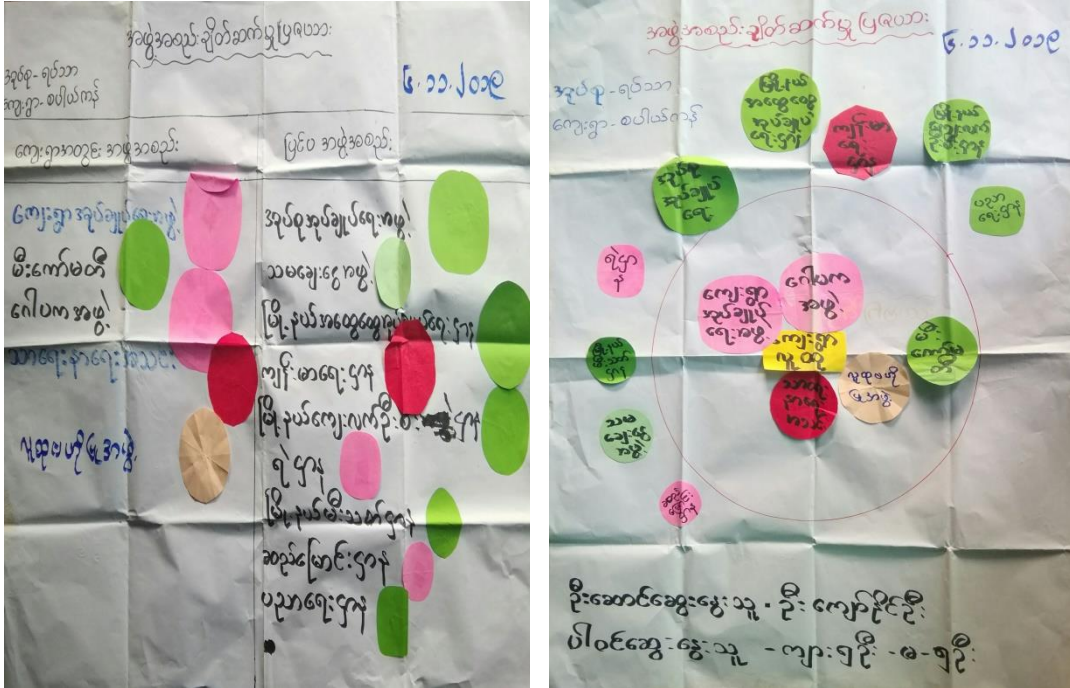 အဖွဲ့အစည်းချိတ်ဆက်မှုပြဇယား
၆.၁၁.၂၀၁၉
အုပ်စု - ရပ်သာ
ကျေးရွာ - စပါယ်ကန်
ကျေးရွာအတွင်းအဖွဲ့အစည်း
ပြင်ပ အဖွဲ့အစည်း
ကျေးရွာအုပ်ချုပ်ရေးအဖွဲ့
မီးကော်မတီ
ဂေါပကအဖွဲ့
သာရေးနာရေးအသင်း
လူထုဗဟိုပြုအဖွဲ့
အုပ်စုအုပ်ချုပ်ရေးအဖွဲ့
သမချေးငွေအဖွဲ့
မြို့နယ်အထွေထွေအုပ်ချုပ်ရေးဌာန
ကျန်းမာရေးဌာန
မြို့နယ်ကျေးလက်ဦးစီးဌာန
ရဲဌာန
မြို့နယ်မီးသတ်ဌာန
ဆည်မြောင်းဌာန
ပညာရေးဌာန
အဖွဲ့အစည်းချိတ်ဆက်မှုပြဇယား
၆.၁၁.၂၀၁၉
အုပ်စု - ရပ်သာ
ကျေးရွာ - စပါယ်ကန်
မြို့နယ်
အထွေထွေ
အုပ်ချုပ်
ရေးဌာန
ကျန်းမာ
ရေး
ဌာန
မြို့နယ်
ကျေးလက်
ဦးစီးဌာန
အုပ်စု
အုပ်ချုပ်
ရေး
ပညာ
ရေးဌာန
ရဲဌာ
န
ကျေးရွာ
အုပ်ချုပ်
ရေးအဖွဲ့
ဂေါပက
အဖွဲ့
ကျေးရွာ
လူထု
မီး
ကော်မတီ
မြို့နယ်
မီးသတ်
ဌာန
သာရေး
နာရေး
အသင်း
လူထုဗဟို
ပြုအဖွဲ့
သမ
ချေးငွေ
အဖွဲ့
ဆည်မြောင်း
ဌာန
ဦးဆောင်ဆွေးနွေးသူ - ဦးကျော်နိုင်ဦး
ပါဝင်ဆွေးနွေးသူ - ကျား ၅ဦး - မ - ၅ဦး